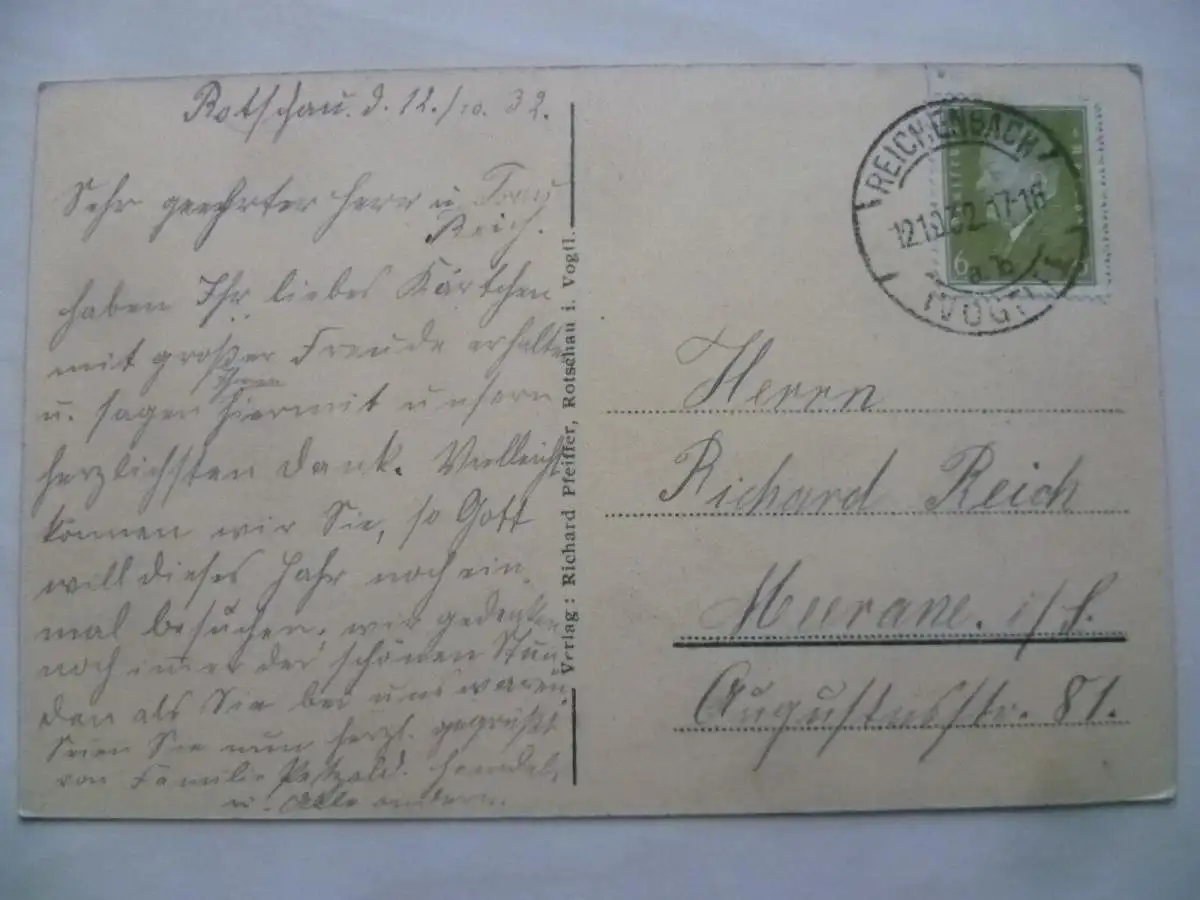 Rotschau. d. 12./10. 32.
Sehr geehrter Herr u. Frau
Reich.
haben Ihr liebes Kärtchen
mit großer Freude erhalten
u. sagen Ihnen hiermit unsern
herzlichsten Dank. Vielleicht
können wir Sie, so Gott
will dieses Jahr noch ein-
mal besuchen. wir gedenken
noch immer der schönen Stun-
den als Sie bei uns waren.
Seien Sie nun herzl. gegrüßt
von Familie Petzold.
u. Alle andern.
Verlag: Richard Pfeiffer, Rotschau i. Vogtl.
REICHENBACH
12.10.32.17-18
a b
(VOGTL)
6
Herrn
Richard Reich
Meerane. i/S.
Augustusstr. 81.